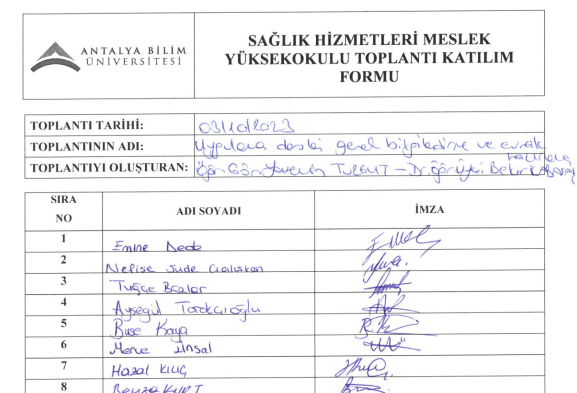 ANTALYA BİLİM
ÜNİVERSİTESİ
SAĞLIK HİZMETLERİ MESLEK
YÜKSEKOKULU TOPLANTI KATILIM
FORMU
TOPLANTI TARİHİ: 03/10/2023
TOPLANTININ ADI: Uygulama dersleri genel bilgilendirme ve evrak
TOPLANTIYI OLUŞTURAN: Öğr. Gör. TURGUT - Dr. Öğr. Üyesi
SIRA
NO
ADI SOYADI
İMZA
1 Emine Dede
2 Nefise Jude Çalışkan
3 Tuğçe
4 Ayşegül
5 Buse Kaya
6 Merve Ünsal
7 Hazal KILIÇ
8 Beyza KURT